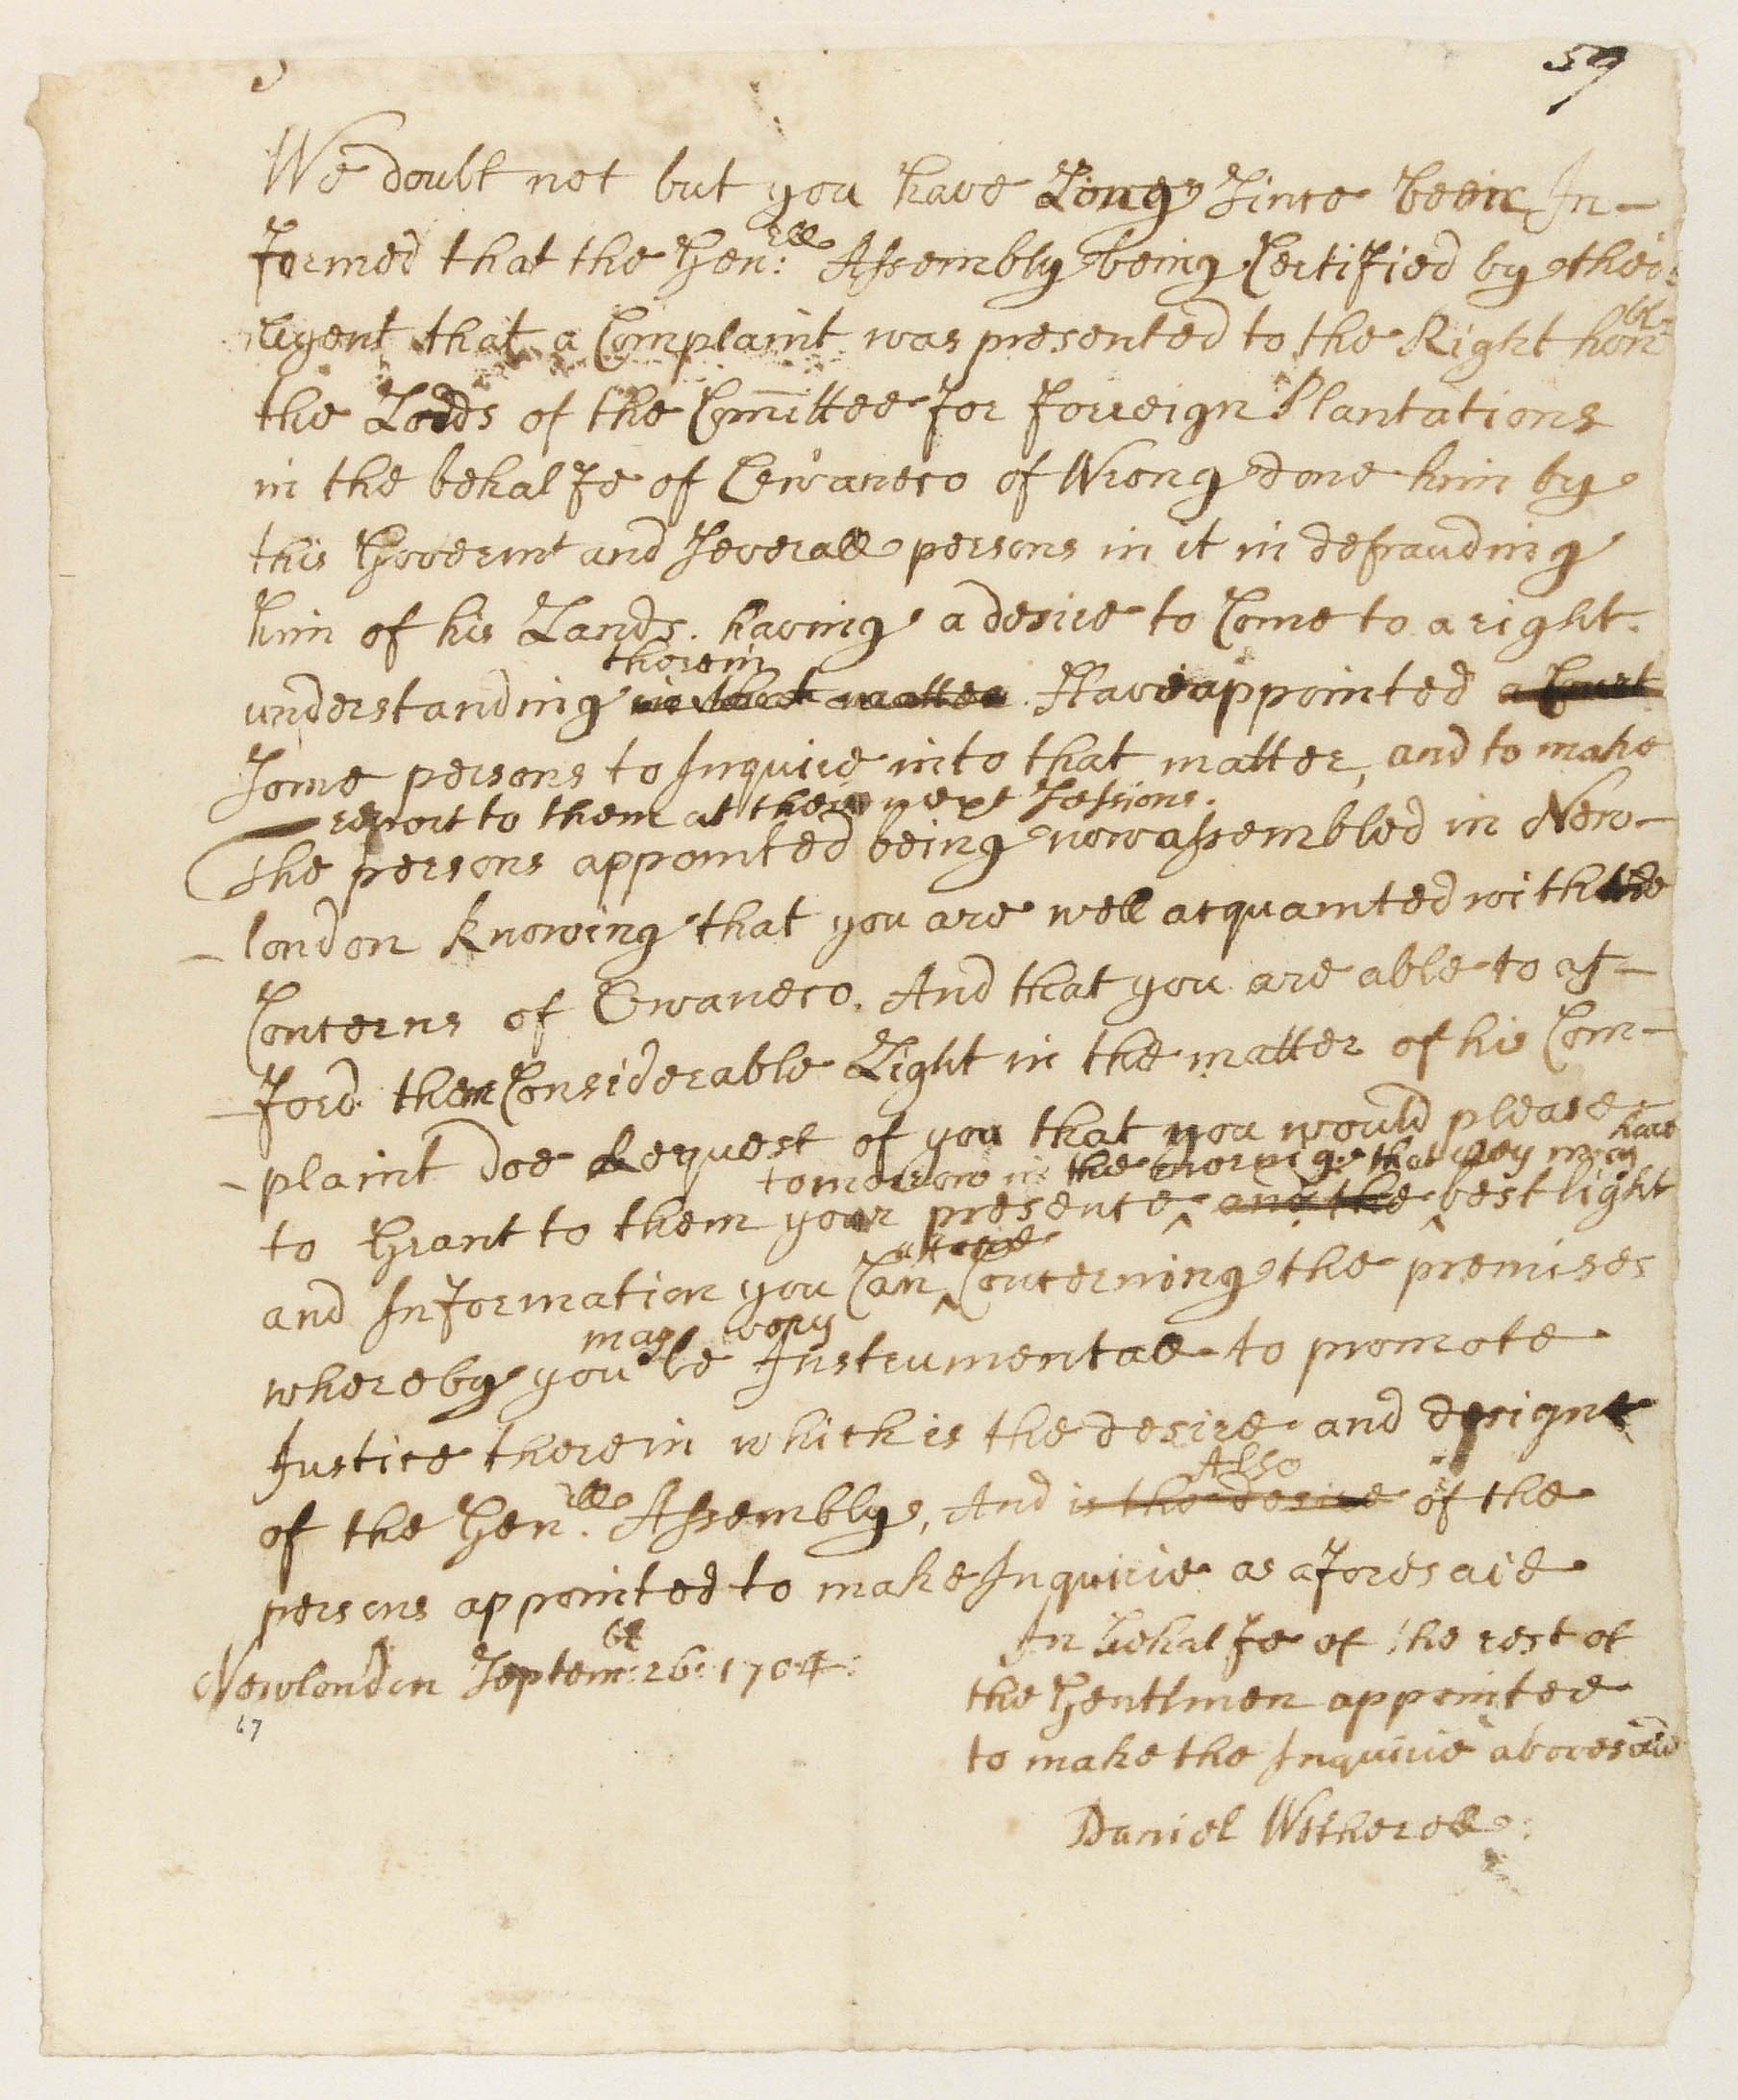 59
We doubt not but you have Long Since been In-
formed that the Gen:rll Assembly being Certified by their
Agent that a Complaint was presented to the Right honble
the Lords of the Comittee for forreign Plantations
in the behalfe of Owaneco of Wrong done him by
this Governmt and Severall persons in it in defrauding
him of his Lands. having a desire to Come to a right
therein
understanding in that matter. Have appointed a Court
Some persons to Inquire into that matter, and to make
report to them at their next Sessions.
The persons appointed being now assembled in New-
-london knowing that you are well acquainted with the
Concerns of Owaneco. And that you are able to af-
-ford them Considerable Light in the matter of his Com-
-plaint doe Request of you that you would please
tomorrow in the morning that they may have
to Grant to them your presence ^ and the ^ best light
and Information you Can ^ Concerning the premises
may very
whereby you be Instrumentall to promote
Justice therein which is the desire and designe
Also
of the Genrll. Assembly, And is the desire of the
persons appointed to make Inquirie as aforesaid
Newlondon Septembr: 26: 1704:
In behalfe of the rest of
the Gentlmen appointed
to make the Inquirie abovesaid
Daniel Wetherell